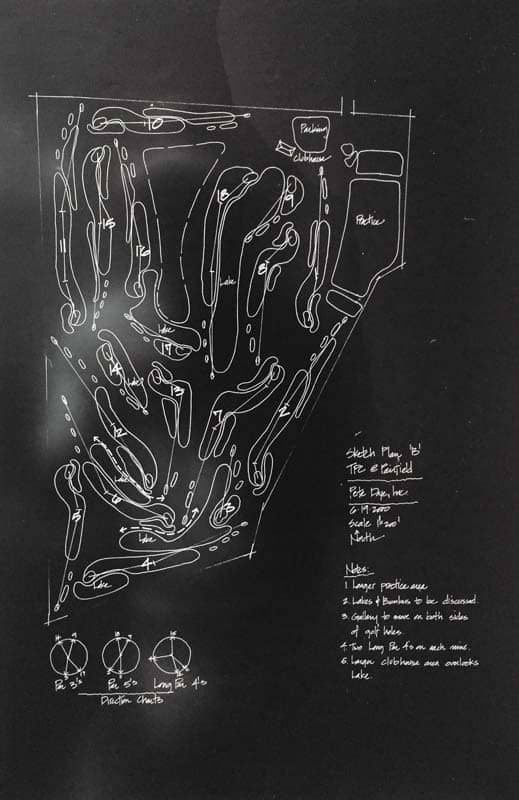 10
Parking
Clubhouse
18
9
Practice
11
15
16
8
Lake
Lake
17
14
Lake
13
7
2
12
6
5
3
Lake
4
Lake
Sketch Plan 'B'
TPC @
Pete Dye, Inc
6·19·2000
Scale 1"=200'
North
Notes:
1. Larger practice area
2. Lakes & Bunkers to be discussed.
3. Gallery to move on both sides
of golf holes.
4. Two Long Par 4's on each nine.
5. Larger clubhouse area overlooks
Lake.
Par 3's
Par 5's
Long Par 4's
Direction Charts